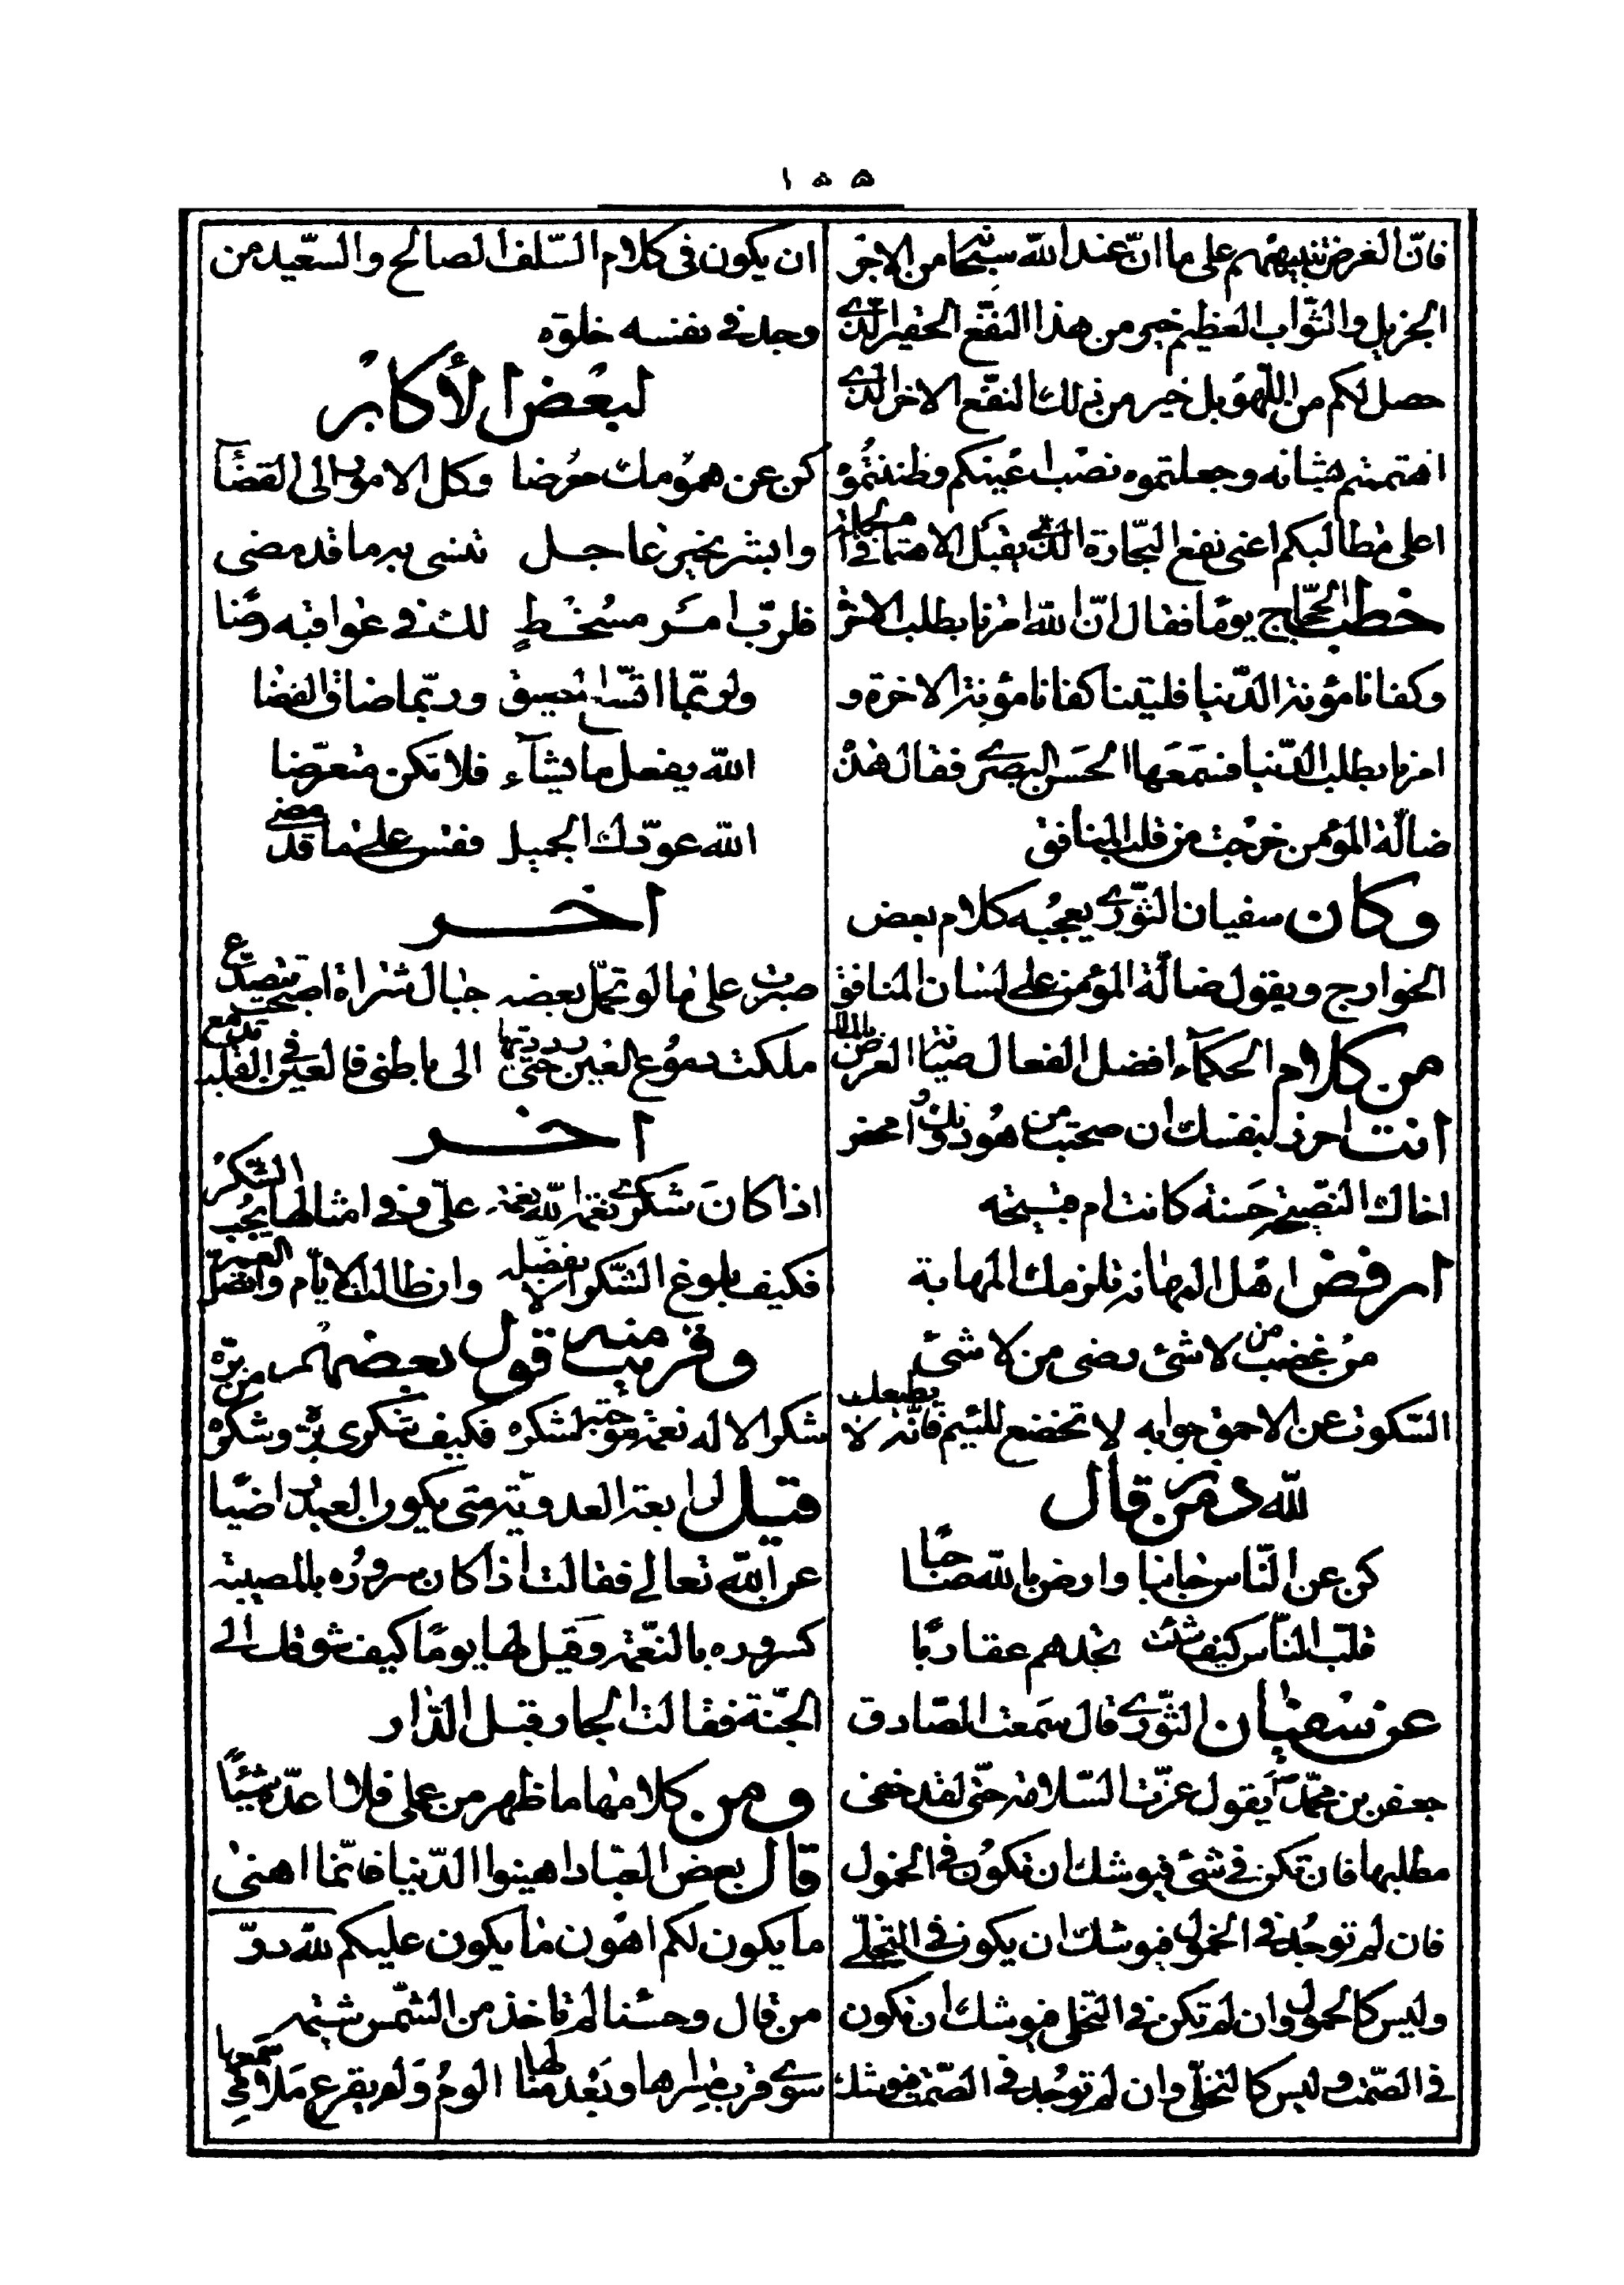 ١٥٥
فانّ الغرض تنبيههم على ما انّ عند الله سبحانه من الاجر
الجزيل والثّواب العظيم خير من هذا النفع الحقير الّذى
حصل لكم من اللّهو بل خير من ذلك النفع الاخر الّذى
اهتممتم بشانه وجعلتموه نصب اعينكم وظننتموه
اعلى مطالبكم اعنى نفع التجارة الّذى يقبل الاهتمام فى الجملة
خطب الحجّاج يومًا فقال انّ الله امرنا بطلب الاخرة
وكفانا مؤنة الدّنيا فليتنا كفانا مؤنة الاخرة و
امرنا بطلب الدّنيا فسمعها الحسن البصرى فقال هذه
ضالّة المؤمن خرجت من قلب المنافق
وكان سفيان الثّورى يعجبه كلام بعض
الخوارج ويقول ضالّة المؤمن على لسان المنافق
من كلام الحكماء افضل الفعال صيانة العرض بالمال
انت احرز لنفسك ان صحبت من هو دونك امحض
اخاك النّصيحة حسنة كانت ام قبيحة
ارفض اهل المهانة تلزمك المهابة
من غضب من لا شئ رضى من لا شئ
السّكوت عن الاحمق جوابه لا تخضع للئيم فانّه لا يطيعك
لله در من قال
كن عن النّاس جانبا وارض بالله صاحبًا
قلّب النّاس كيف شئت تجدهم عقاربًا
عن سفيان الثّورى قال سمعت الصّادق
جعفر بن محمّد يقول عزّت السّلامة حتّى لقد خفى
مطلبها فان تكن فى شئ فيوشك ان تكون فى الخمول
فان لم توجد فى الخمول فيوشك ان يكون فى التّخلّى
وليس كالخمول وان لم تكن فى التخلى فيوشك ان تكون
فى الصّمت وليس كالتخلّى وان لم توجد فى الصّمت فيوشك
ان يكون فى كلام السّلف الصالح والسّعيد من
وجد فى نفسه خلوة
لبعض الأكابر
كن عن همومك معرضا وكل الامور الى القضاء
وابشر بخير عاجل تنسى به ما قد مضى
فلربّ امر مسخط لك فى عواقبه رضا
ولربّما اتّسع المضيق وربّما ضاق الفضا
الله يفعل ما يشاء فلا تكن متعرّضا
الله عوّدك الجميل فقس على ما قد مضى
اخر
صبرت على ما لو تحمّل بعضه جبال شراة اصبحت تتصدّع
ملكت دموع العين حتى رددتها الى باطنى فالعين فى القلب تدمع
اخر
اذا كان شكرى نعمة الله نعمة علىّ فى امثالها يجب الشكر
فكيف بلوغ الشّكر الا بفضله وان طالت الايّام واتّصل العمر
وقريب منه قول بعضهم
شكر الاله نعمة موجبة لشكره فكيف شكرى برّه وشكره من برّه
قيل لرابعة العدويّة متى يكون العبد راضيًا
عن الله تعالى فقالت اذا كان سروره بالمصيبة
كسروره بالنّعمة وقيل لها يومًا كيف شوقك الى
الجنّة فقالت الجار قبل الدّار
ومن كلامها ما ظهر من عملى فلا اعدّه شيئًا
قال بعض العباد اهينوا الدّنيا فانّما اهنى
ما يكون لكم اهون ما يكون عليكم لله درّ
من قال وحسنا لم تاخذ من الشّمس شيمة
سوى قرب مسراها وبعد منالها اللوم ولم يقرع ملامى سمعها